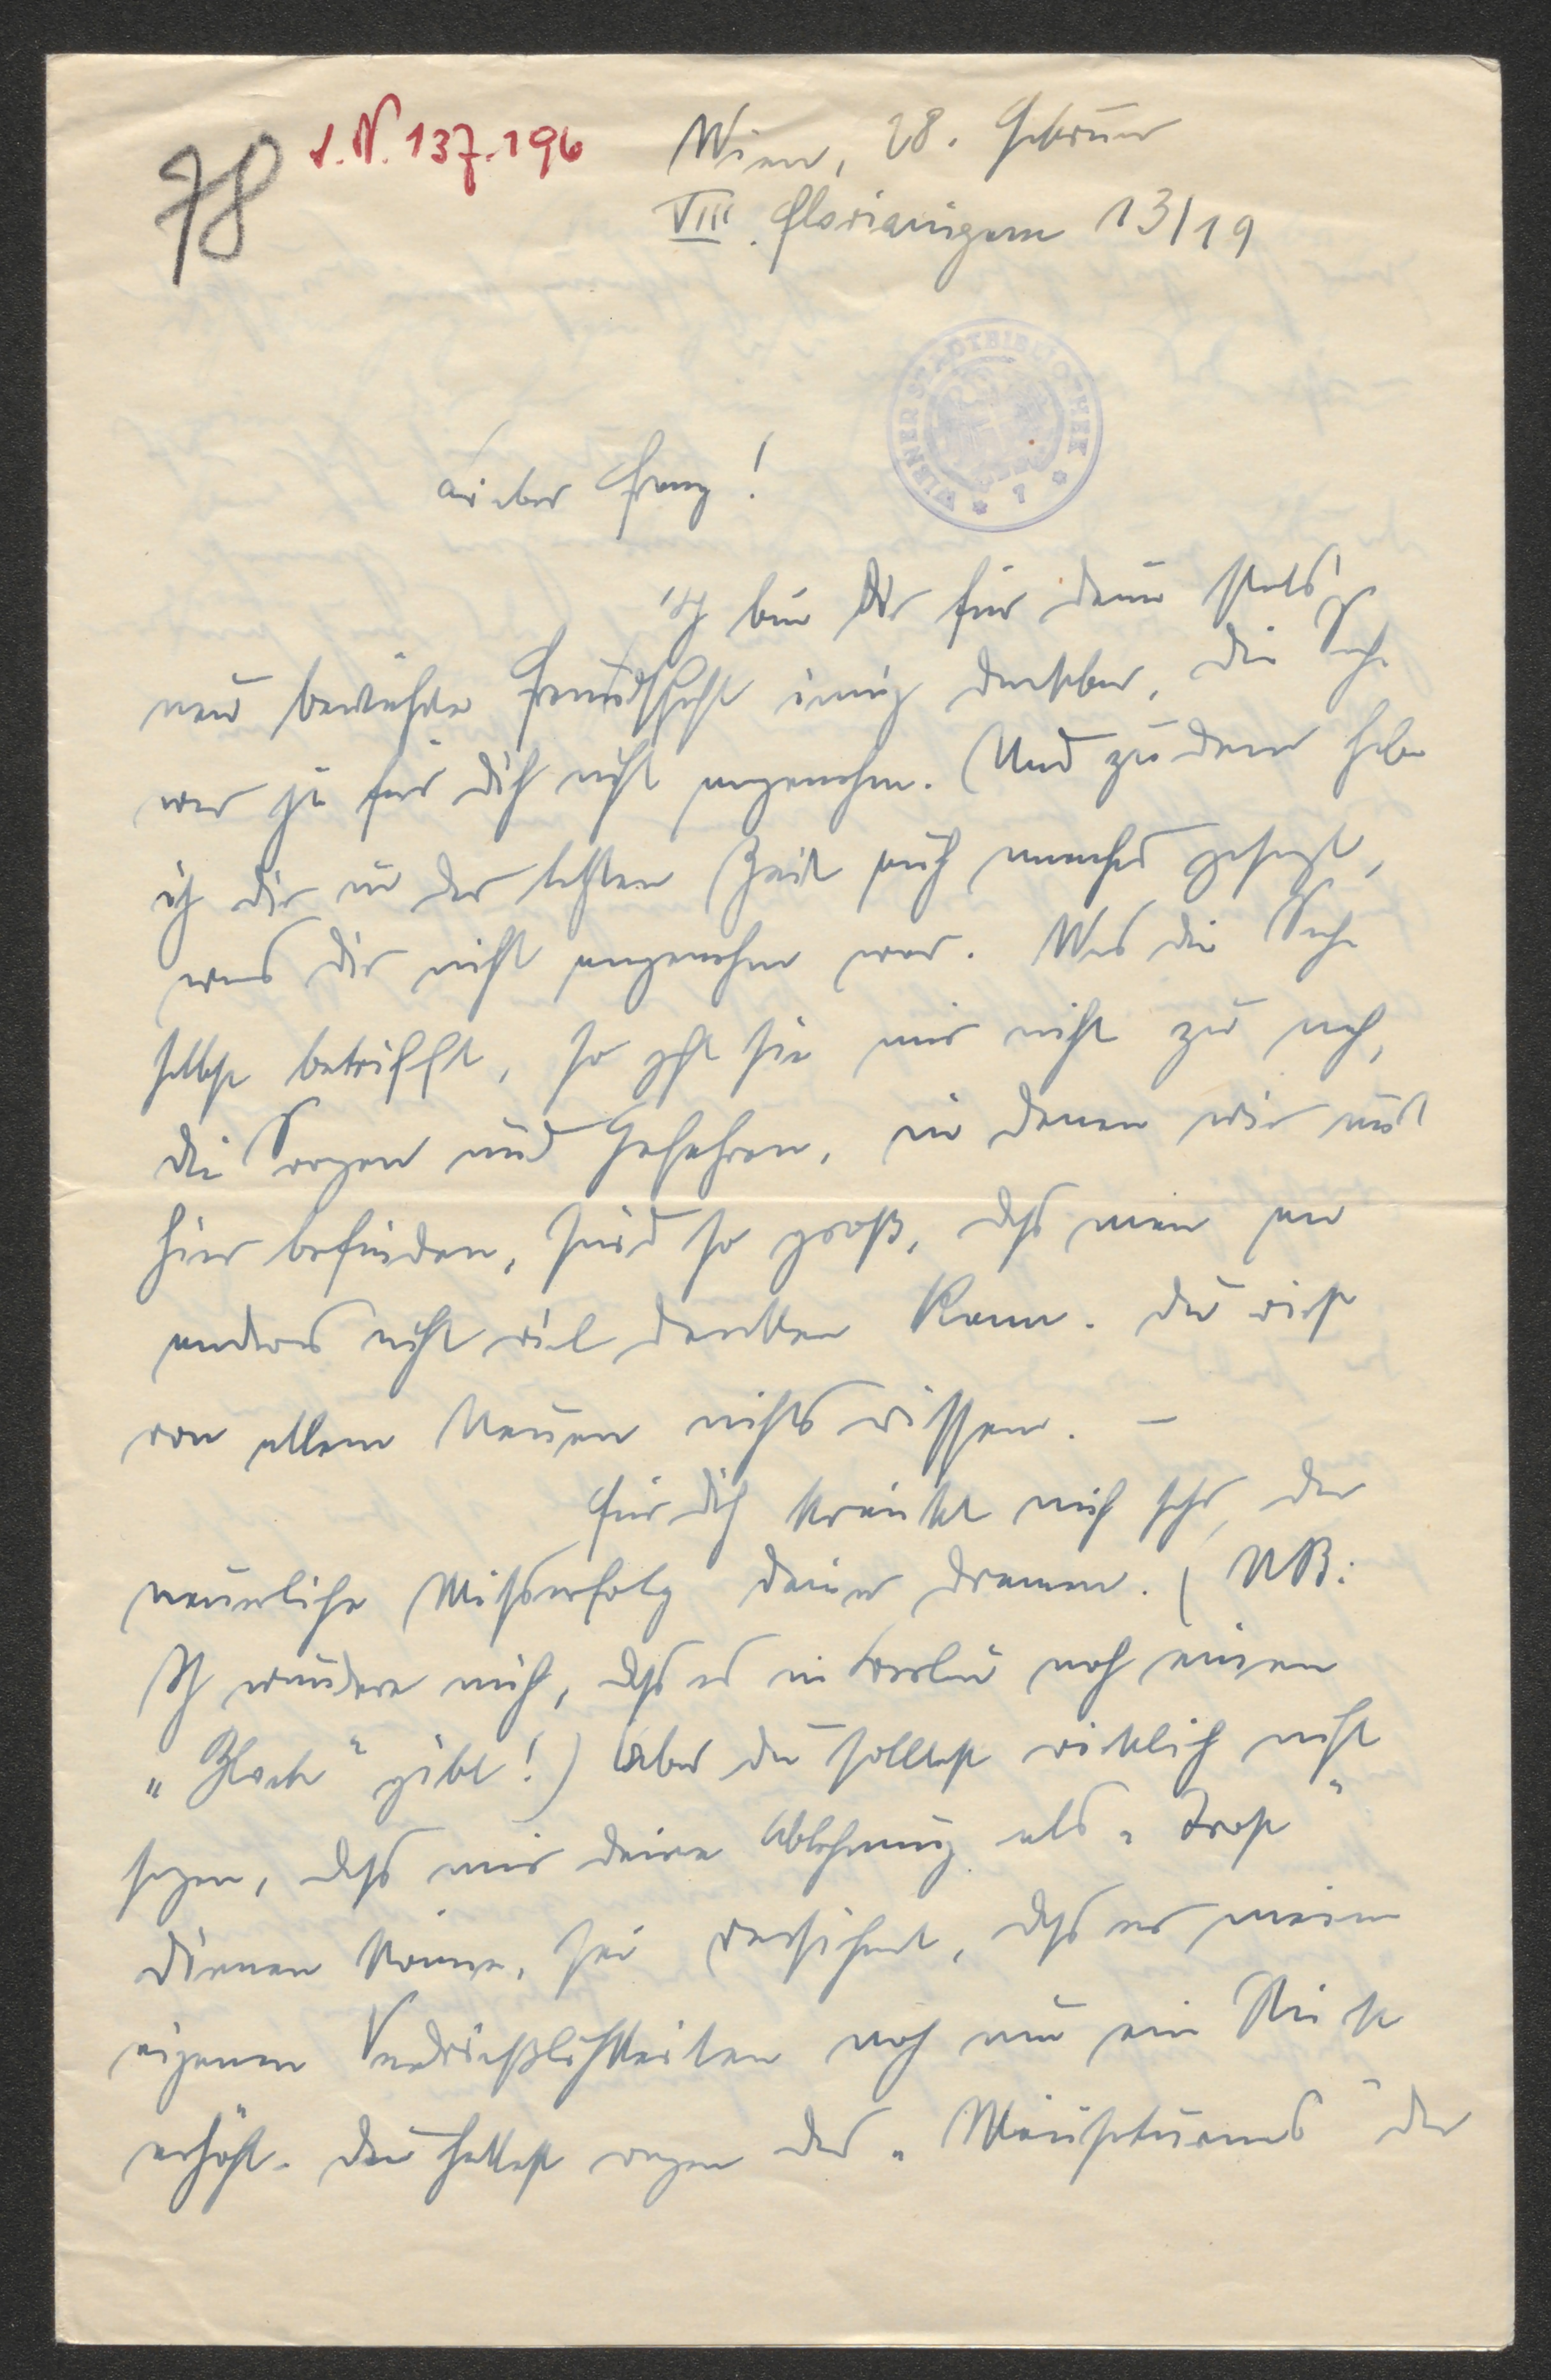 78
I.N. 137.196
Wien, 28. Februar
VIII. Florianigasse 13/19
WIENER STADTBIBLIOTHEK * 1 *
Lieber Franz!
Ich bin Dir für deine stets
neu bewährte Freundschaft innig dankbar, die Sache
war ja für dich nicht angenehm. Und zudem habe
ich dir in der letzten Zeit auch manches gesagt,
was dir nicht angenehm war. Was die Sache
selbst betrifft, so geht sie mir nicht zu nah,
die Sorgen und Gefahren, in denen wir uns
hier befinden, sind so groß, dass man an
anderes nicht viel denken kann. Du wirst
von allem Neuen nichts wissen. –
Für dich kränkt mich sehr, der
neuerliche Misserfolg deiner Dramen. (NB:
Ich wundere mich, dass es in Berlin noch einen
" " gibt!) Aber du solltest wirklich nicht
sagen, dass mir deine Ablehnung als „Trost“
dienen könne, sei versichert, dass es meine
eigenen Verdrießlichkeiten noch um ein
erhöht. Du hattest wegen des „Mäuseturms“ der